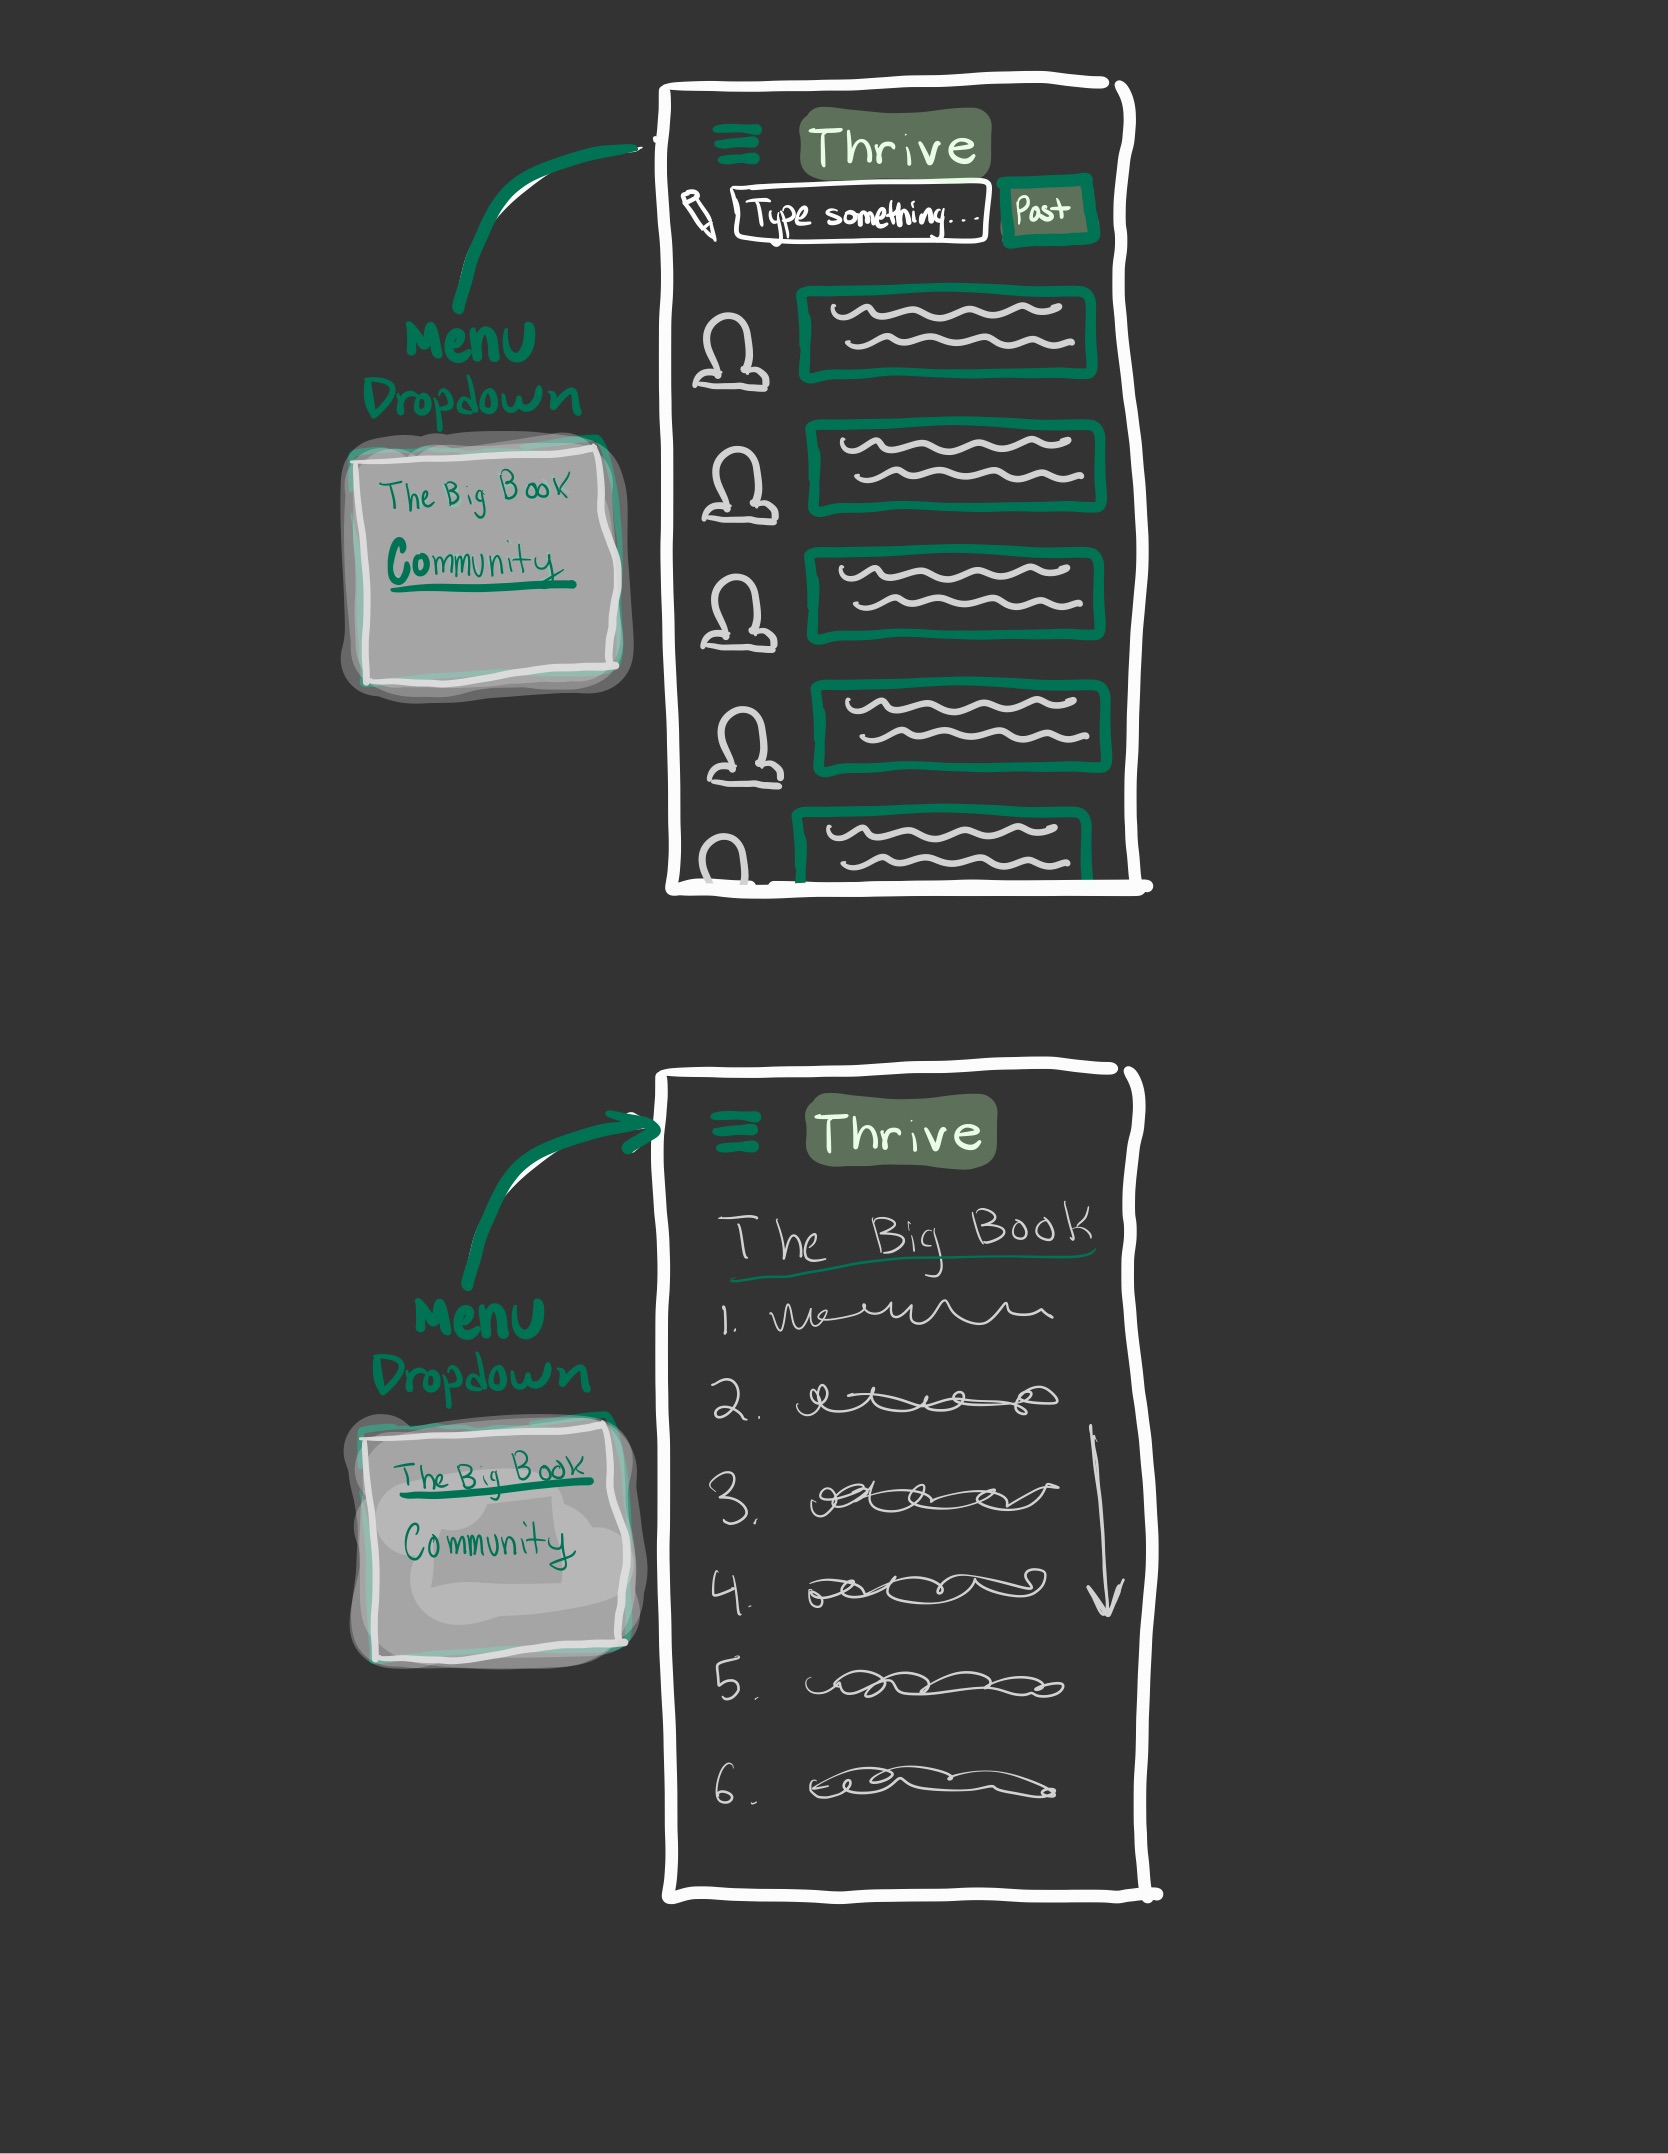 Thrive
Type something...
Post
Menu
Dropdown
The Big Book
Community
Thrive
The Big Book
1.
2.
3.
4.
5.
6.
Menu
Dropdown
The Big Book
Community